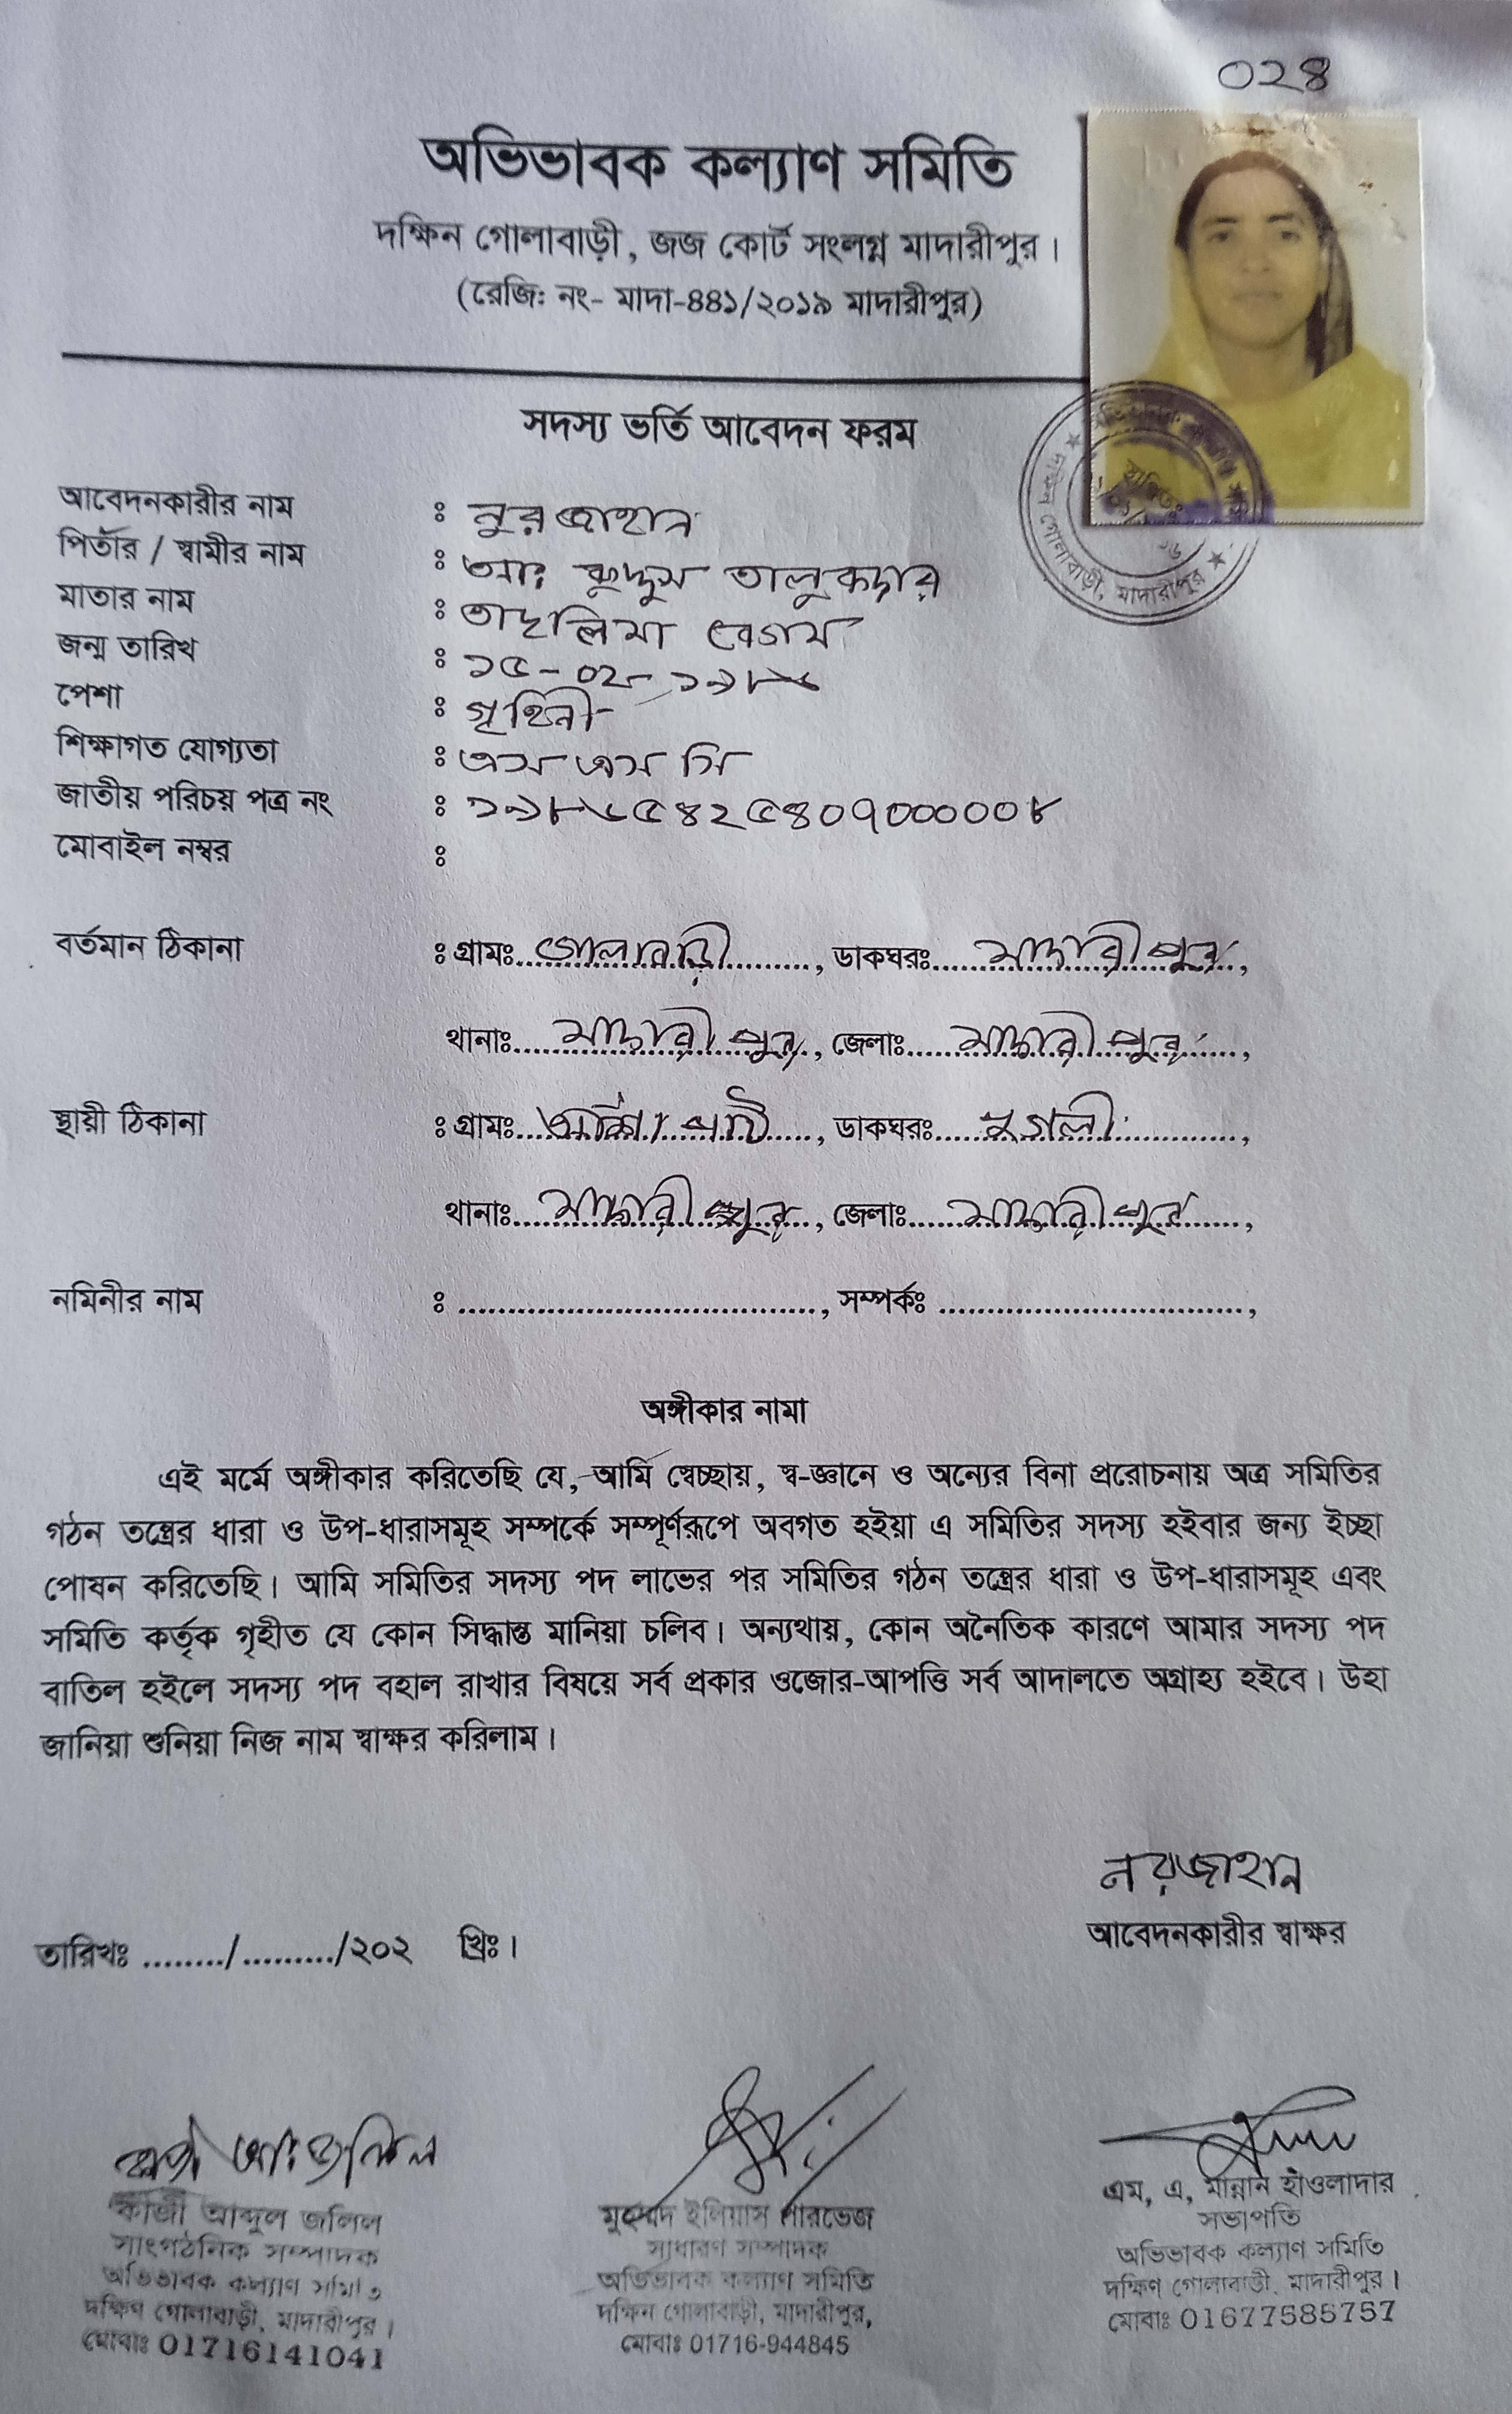 ০২৪
অভিভাবক কল্যাণ সমিতি
দক্ষিন গোলাবাড়ী, জজ কোর্ট সংলগ্ন মাদারীপুর।
(রেজি: নং- মাদা-৪৪১/২০১৯ মাদারীপুর)
সদস্য ভর্তি আবেদন ফরম
আবেদনকারীর নাম : নুরজাহান
পিতার / স্বামীর নাম : আঃ কুদ্দুস তালুকদার
মাতার নাম : তাছলিমা বেগম
জন্ম তারিখ : ১৫-০২-১৯৮৬
পেশা : গৃহিনী
শিক্ষাগত যোগ্যতা : এস এস সি
জাতীয় পরিচয় পত্র নং : ১৯৮৬৫৪২৫৪০৭০০০০০৮
মোবাইল নম্বর :
বর্তমান ঠিকানা : গ্রামঃ গোলাবাড়ী, ডাকঘরঃ মাদারীপুর,
থানাঃ মাদারীপুর, জেলাঃ মাদারীপুর,
স্থায়ী ঠিকানা : গ্রামঃ, ডাকঘরঃ
থানাঃ মাদারীপুর, জেলাঃ মাদারীপুর,
নমিনীর নাম : ...................................., সম্পর্কঃ ...............................,
অঙ্গীকার নামা
এই মর্মে অঙ্গীকার করিতেছি যে, আমি স্বেচ্ছায়, স্ব-জ্ঞানে ও অন্যের বিনা প্ররোচনায় অত্র সমিতির
গঠন তন্ত্রের ধারা ও উপ-ধারাসমূহ সম্পর্কে সম্পূর্ণরূপে অবগত হইয়া এ সমিতির সদস্য হইবার জন্য ইচ্ছা
পোষন করিতেছি। আমি সমিতির সদস্য পদ লাভের পর সমিতির গঠন তন্ত্রের ধারা ও উপ-ধারাসমূহ এবং
সমিতি কর্তৃক গৃহীত যে কোন সিদ্ধান্ত মানিয়া চলিব। অন্যথায়, কোন অনৈতিক কারণে আমার সদস্য পদ
বাতিল হইলে সদস্য পদ বহাল রাখার বিষয়ে সর্ব প্রকার ওজোর-আপত্তি সর্ব আদালতে অগ্রাহ্য হইবে। উহা
জানিয়া শুনিয়া নিজ নাম স্বাক্ষর করিলাম।
নুরজাহান
আবেদনকারীর স্বাক্ষর
তারিখঃ ......../........./২০২ খ্রিঃ।
কাজী আঃ জলিল
কাজী আব্দুল জলিল
সাংগঠনিক সম্পাদক
অভিভাবক কল্যাণ সমিতি
দক্ষিণ গোলাবাড়ী, মাদারীপুর।
মোবাঃ 01716141041
মুহাম্মদ ইলিয়াস পারভেজ
সাধারণ সম্পাদক
অভিভাবক কল্যাণ সমিতি
দক্ষিন গোলাবাড়ী, মাদারীপুর,
মোবাঃ 01716-944845
এম, এ, মান্নান হাঁওলাদার
সভাপতি
অভিভাবক কল্যাণ সমিতি
দক্ষিণ গোলাবাড়ী, মাদারীপুর।
মোবাঃ 01677585757